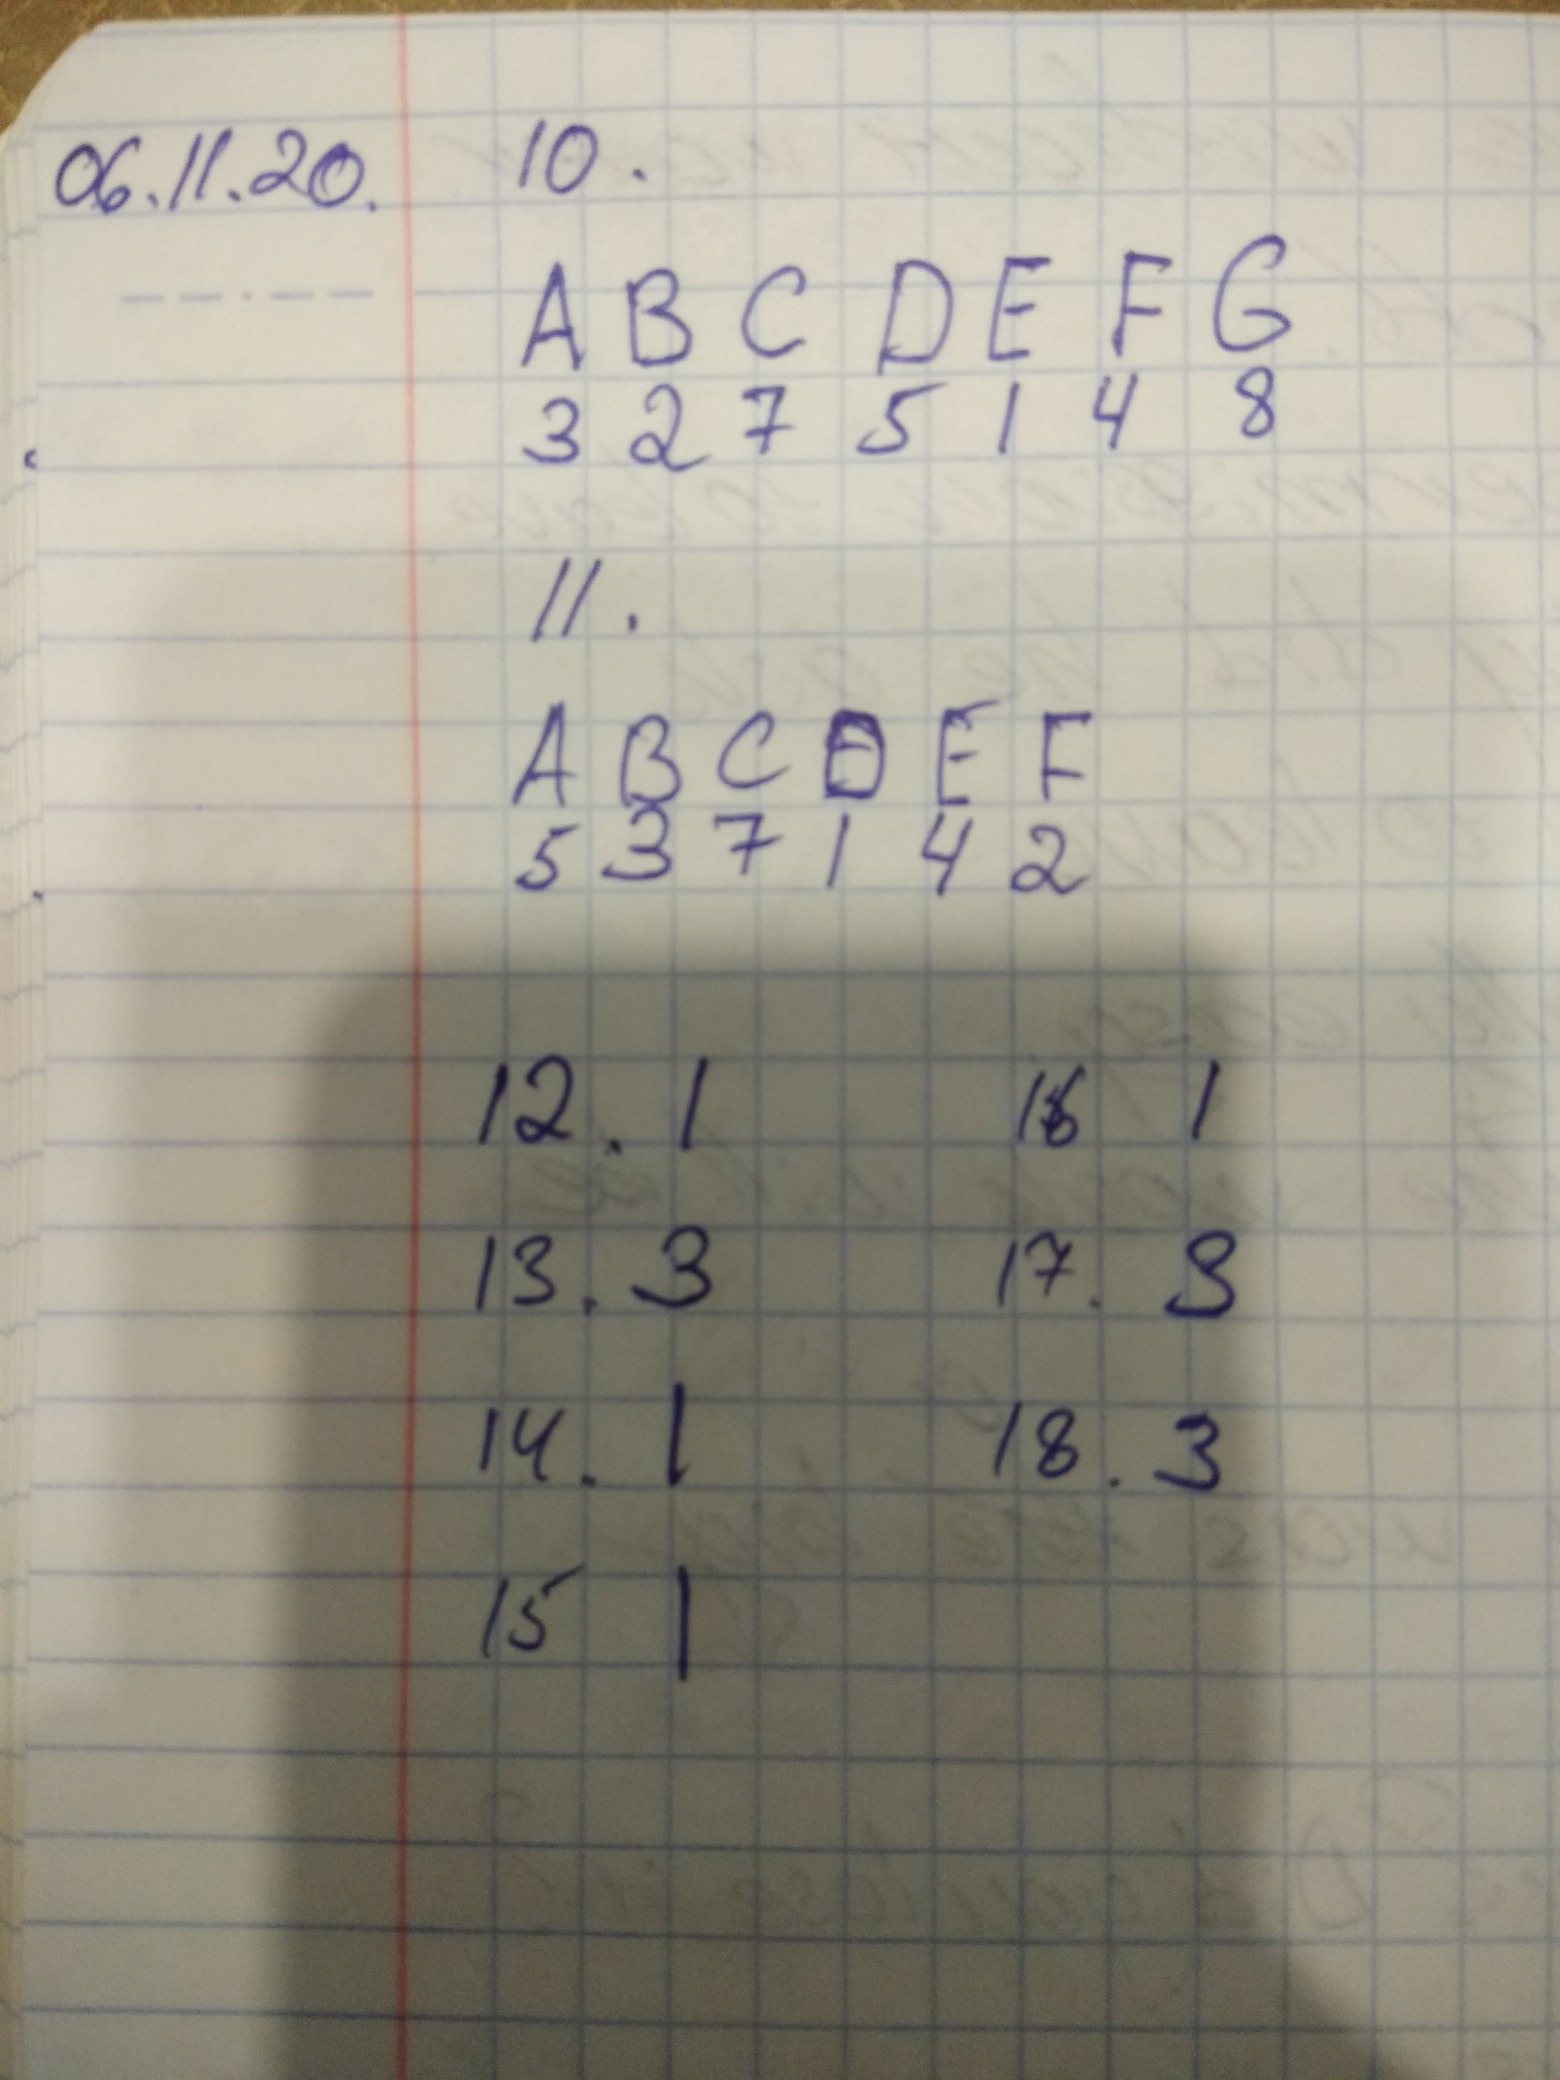 06.11.20. 10.
A B C D E F G
3 2 7 5 1 4 8
11.
A B C D E F
5 3 7 1 4 2
12. 1 16 1
13. 3 17. 3
14. 1 18. 3
15 1